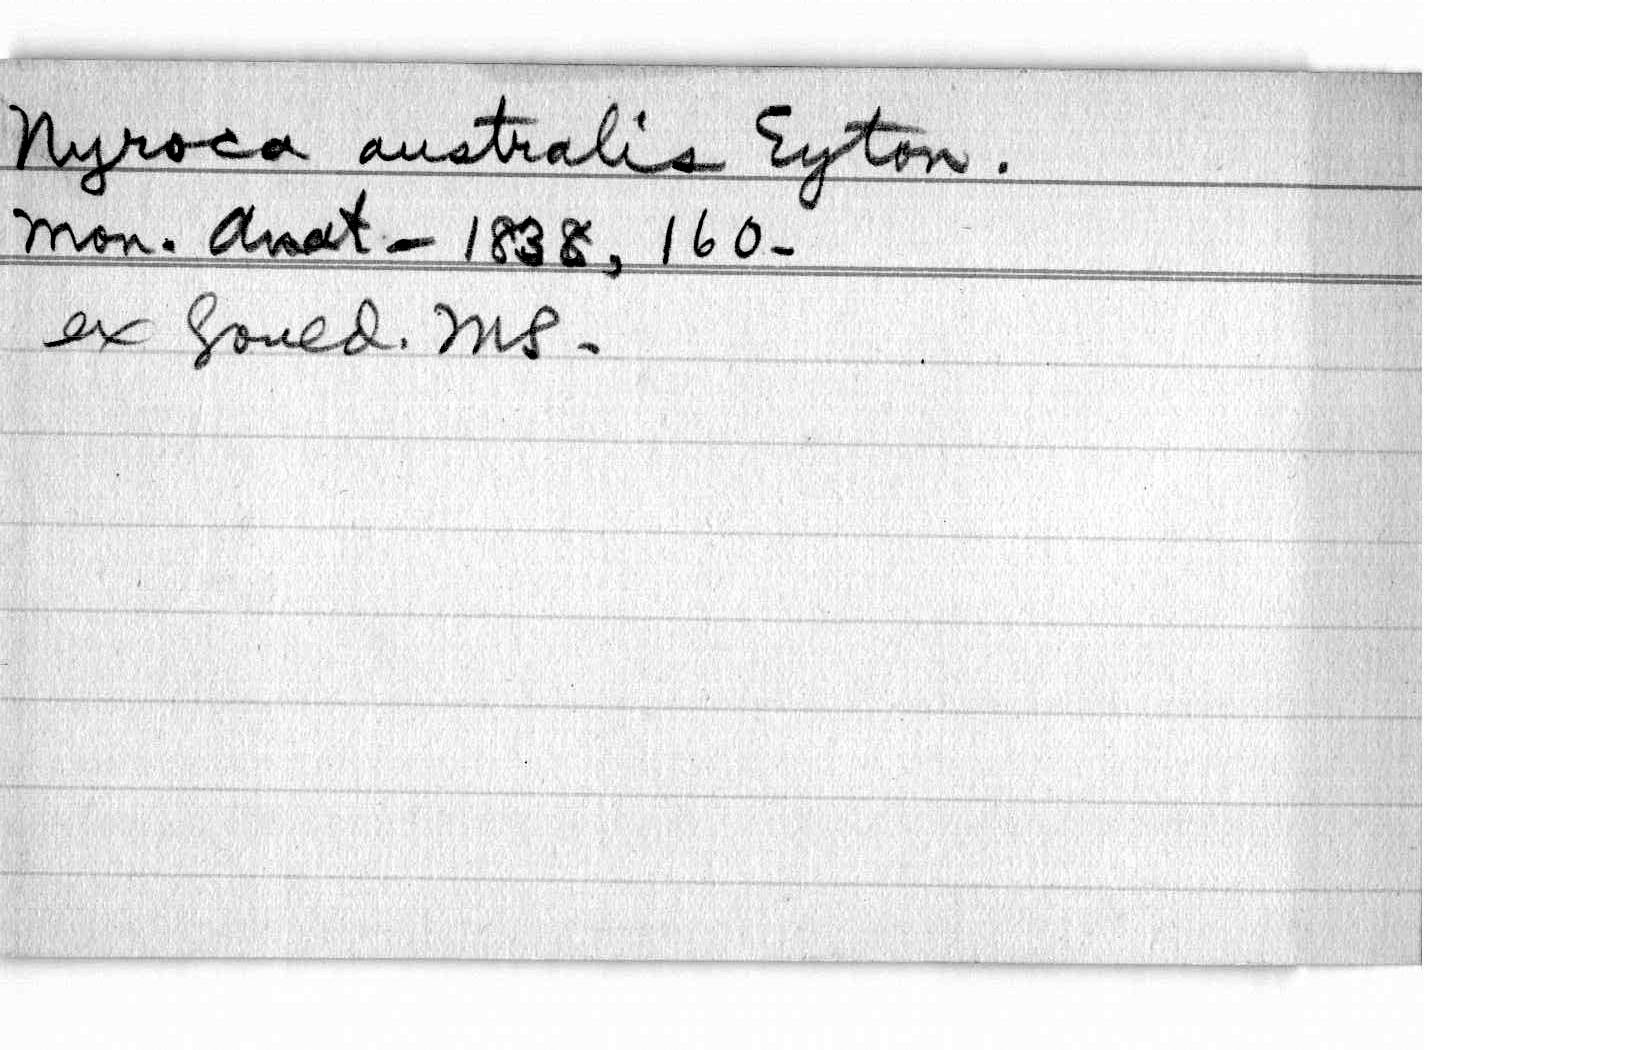 Nyroca australis Eyton.
Mon. Anat - 1838, 160-
ex Gould. MS -